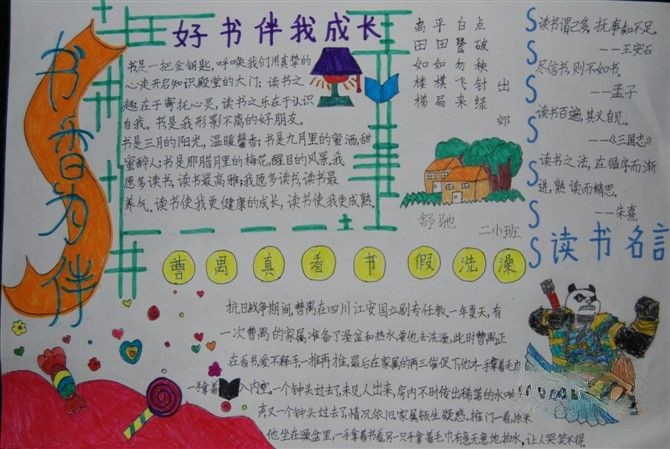 书香为伴
好书伴我成长
书是一把金钥匙,呼唤我们用真挚的
心走开启知识殿堂的大门;读书之
趣在于寄托心灵,读书之乐在于认识
自我。书是我形影不离的好朋友。
书是三月的阳光,温暖馨香;书是九月里的蜜酒,甜
蜜醉人;书是那腊月里的梅花,醒目的风景。我
愿多读书,读书最高雅;我愿多读书,读书最
养气。读书使我更健康的成长,读书使我更成熟.
高平白点
田田鹭破
如如勿秧
楼棋飞针出
梯局来绿
郊
舒驰
二小班
S读书谓已多,抚事知不足。
——王安石
S尽信书,则不如书。
——孟子
S读书百遍,其义自见。
——《三国志》
S读书之法,在循序而渐
进,熟读而精思。
S
——朱熹
S读书名言
曹禺真看书 假洗澡
抗日战争期间,曹禺在四川江安国立剧专任教.一年夏天,有
一次曹禺的家属准备了澡盆和热水要他去洗澡,此时曹禺正
在看书,爱不释手,一推再推,最后在家属的再三催促下他才一手拿着毛巾
一手拿着 入内室。一个钟头过去了,未见人出来,房内不时传出稀落的水响
声,又一个钟头过去了,情况依旧.家属顿生疑惑,推门一看,原来
他坐在澡盆里,一手拿着书看,另一只手拿着毛巾有意无意地拍水,让人哭笑不得.